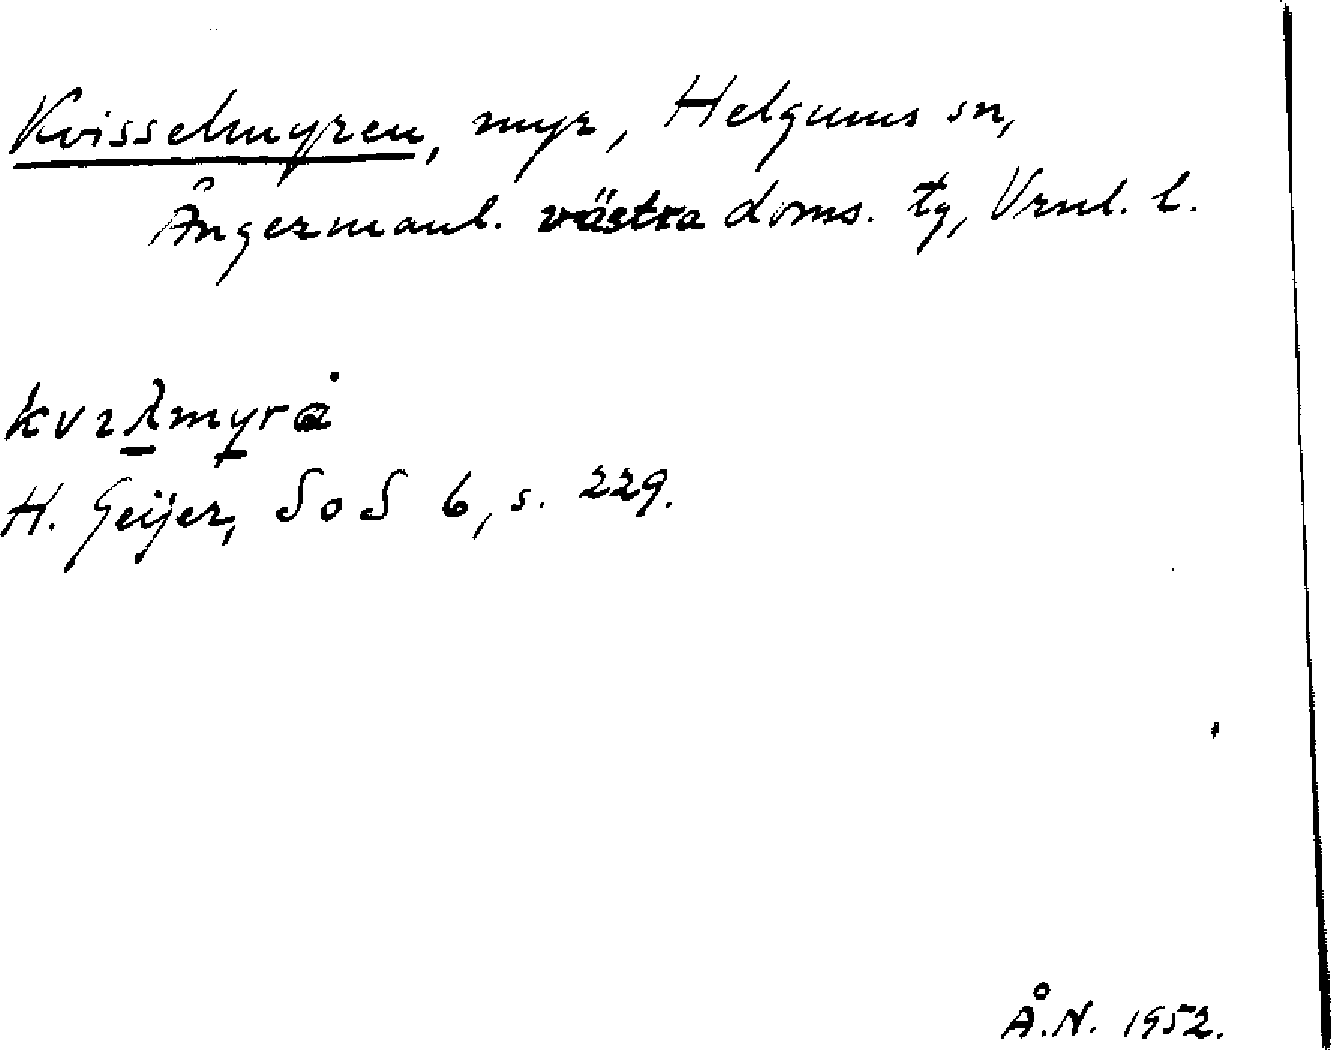 Kvisselmyren, myr, Helgums sn,
Ångermanl. västra doms. tg, Vrnl. l.
kvıλ̠my̠rȧ
H. Geijer, SoS 6, s. 229.
Å.N. 1952.